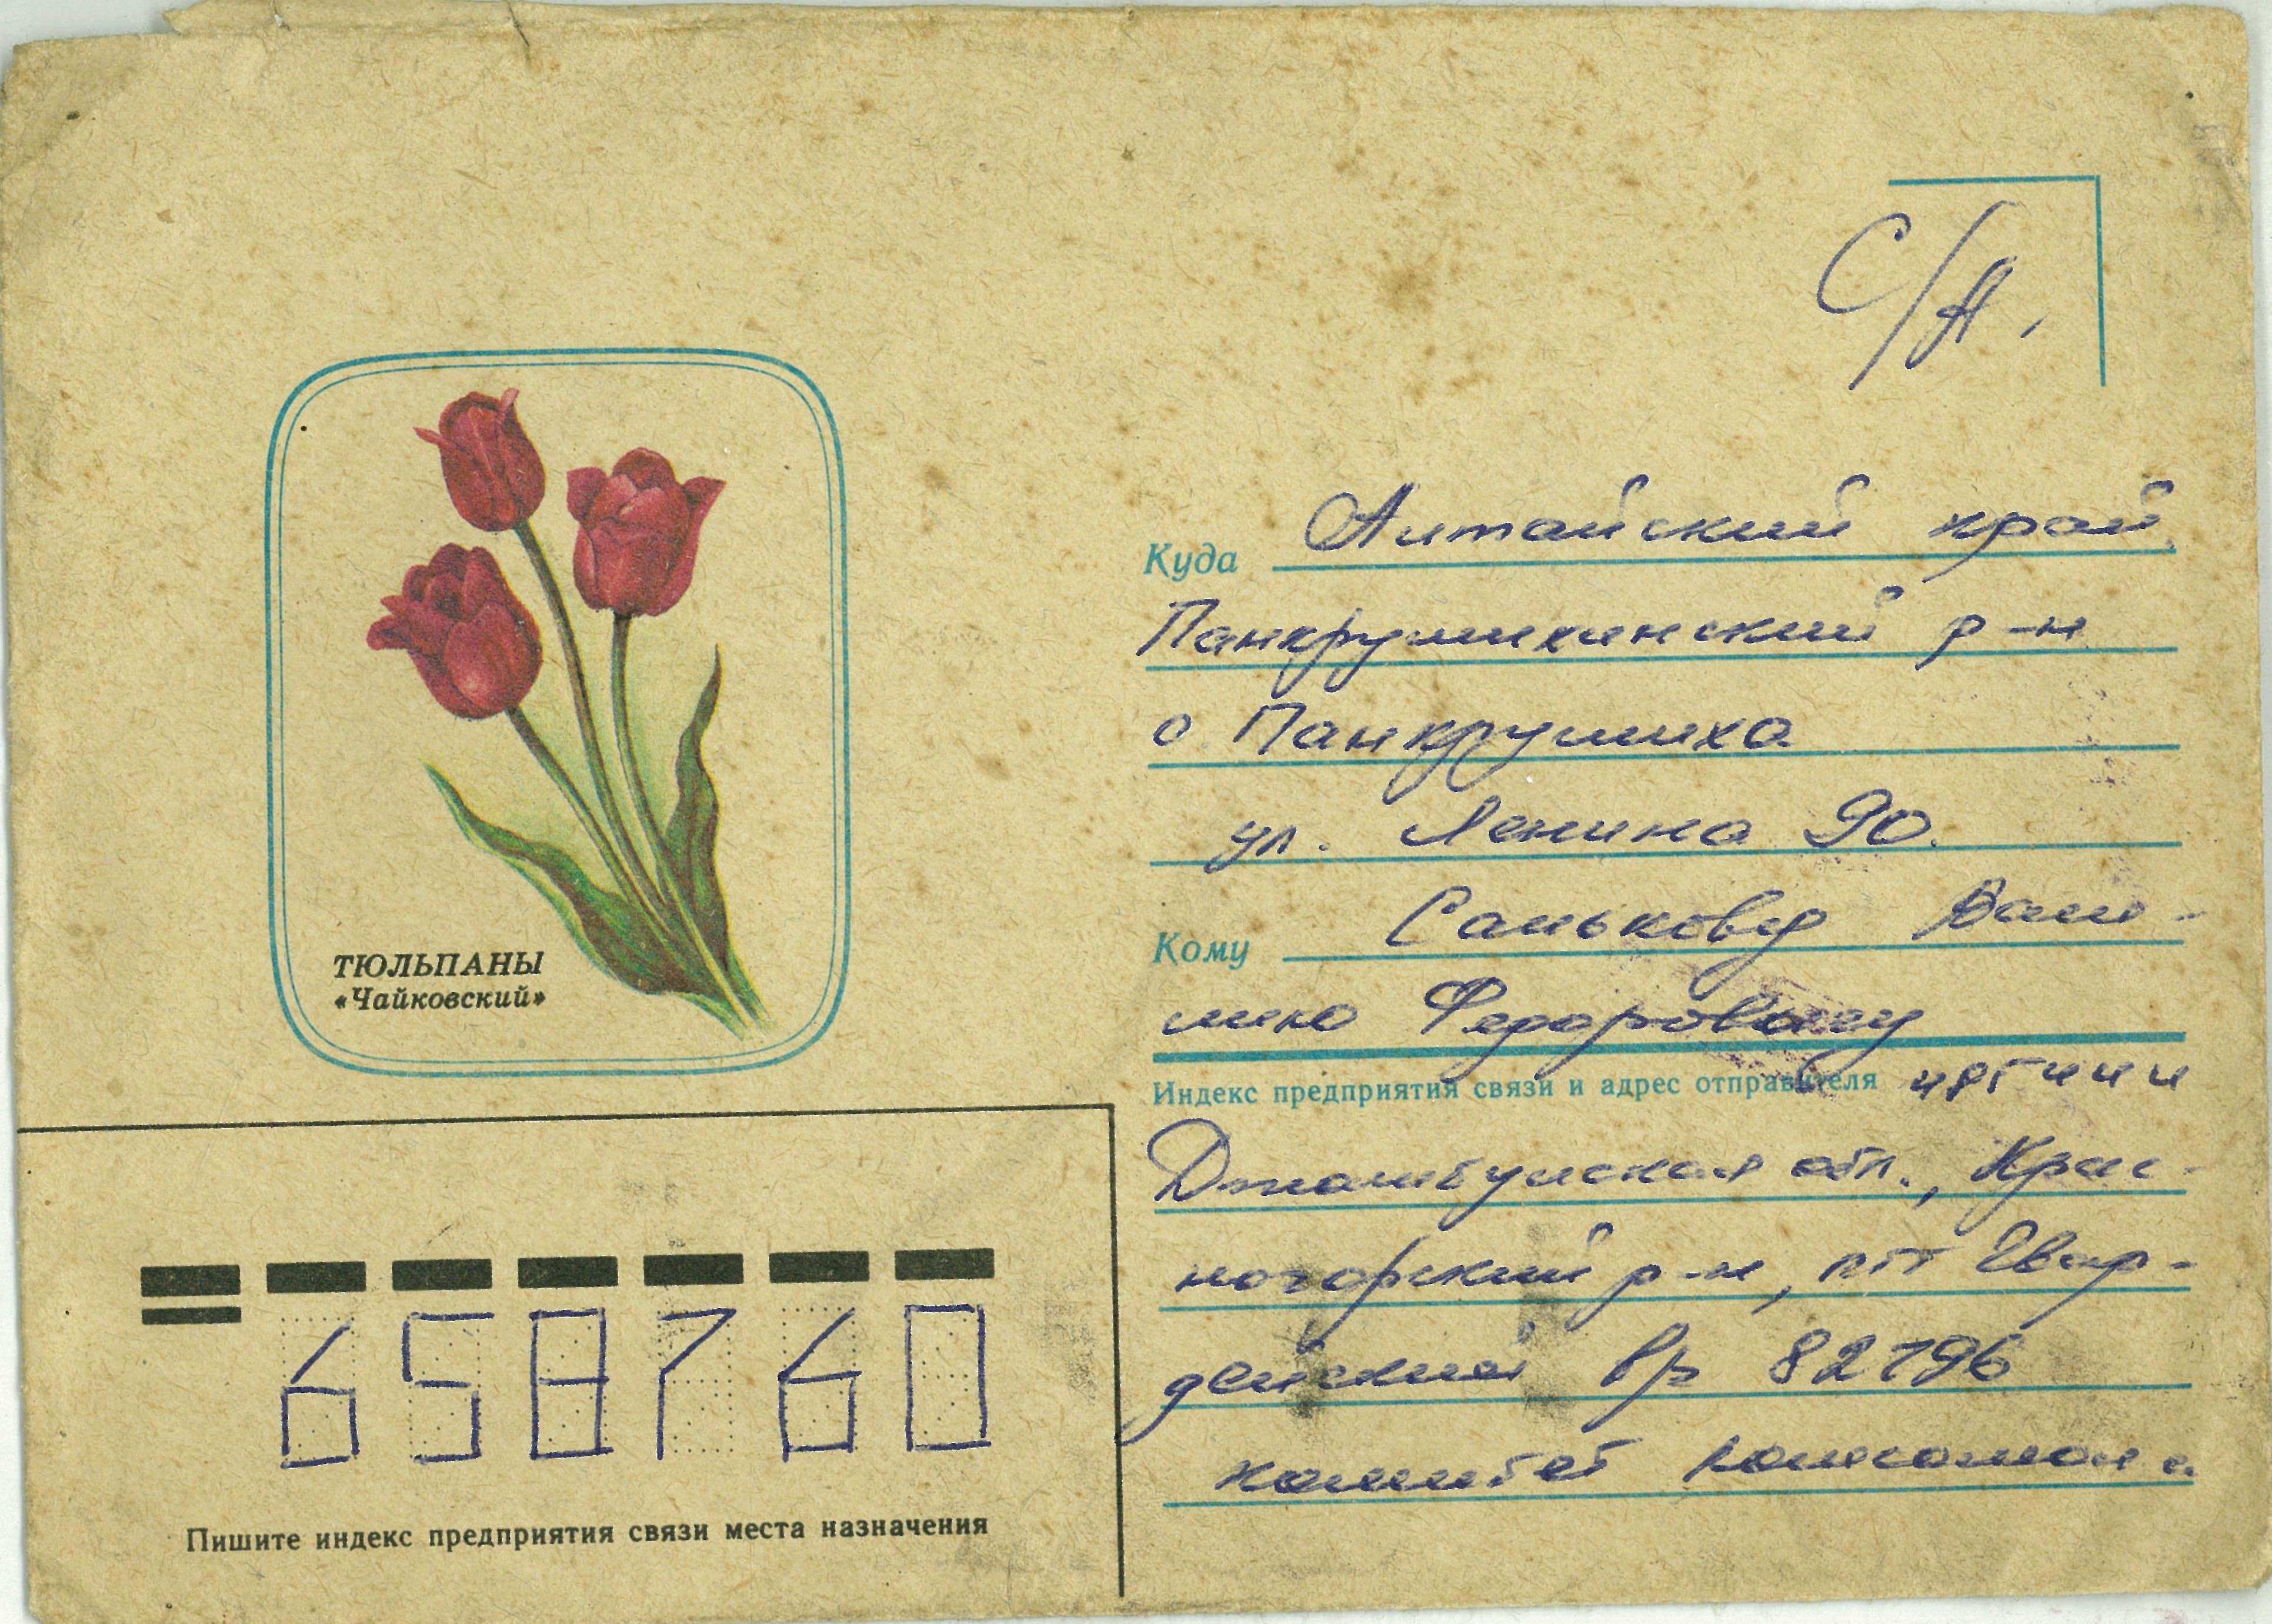 С/А.
Куда Алтайский край
Панкрушихинский р-н
с. Панкрушиха
ул. Ленина 90.
Кому Санькову Васи-
лию Федоровичу
Индекс предприятия связи и адрес отправителя
Джамбулская обл., Крас-
ногорский р-н, пгт Гвар-
дейский в/ч 82796
комитет комсомола.
ТЮЛЬПАНЫ
«Чайковский»
658760
Пишите индекс предприятия связи места назначения